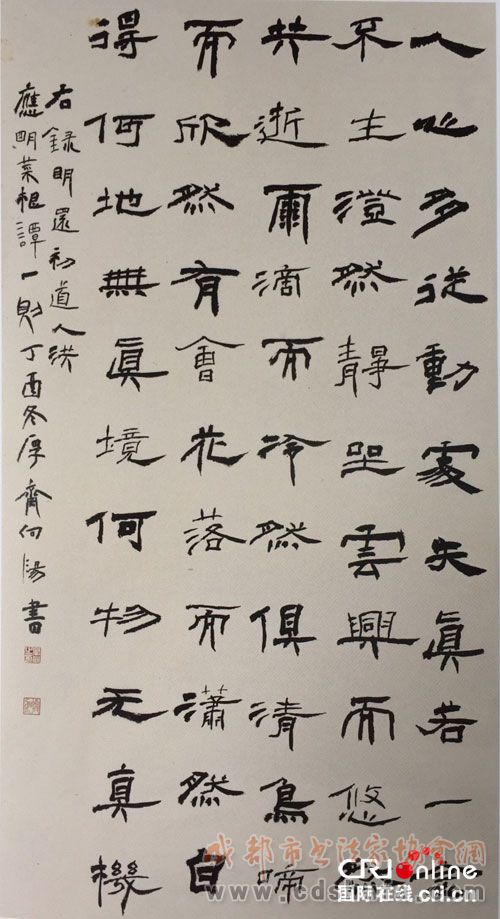 人心多從動處失眞若一
不生澄然靜坐雲興而悠
共逝爾滴而冷然俱清鳥啼
而欣然有會花落而瀟然自
得何地無眞境何物无真機
右錄明還初道人洪
應明菜根譚一則丁酉冬厚齋向書
成都市书法家协会网
CRI online
国际在线 cri.cn